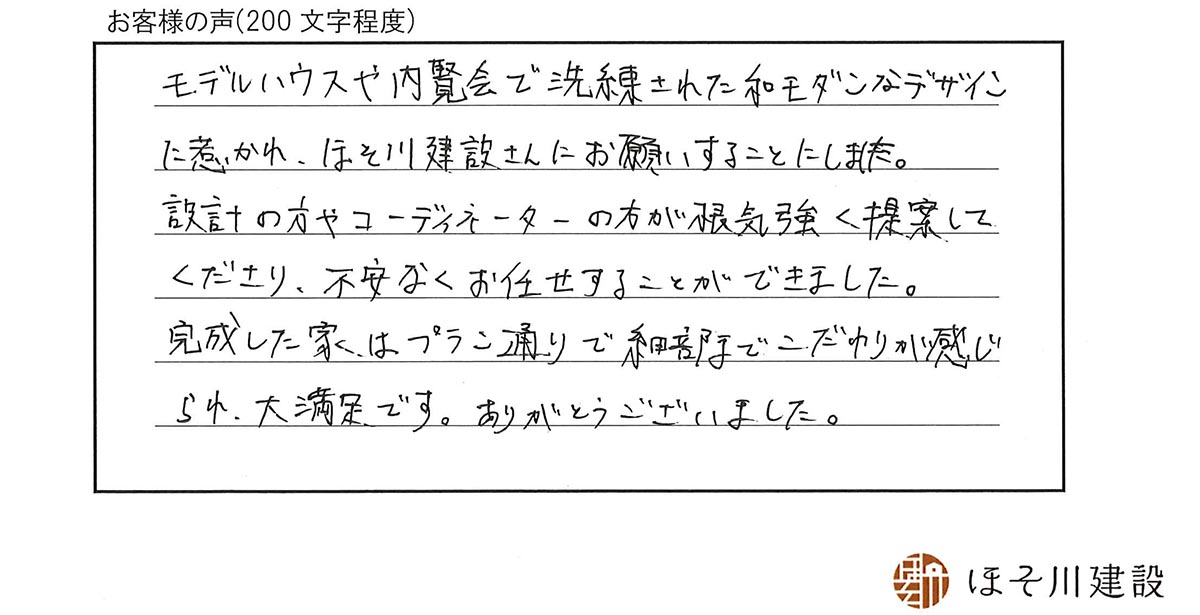 お客様の声(200 文字程度)
モデルハウスや内覧会で洗練された和モダンなデザイン
に惹かれ、ほそ川建設さんにお願いすることにしました。
設計の方やコーディネーターの方が根気強く提案して
くださり、不安なくお任せすることができました。
完成した家はプラン通りで細部までこだわりが感じ
られ、大満足です。ありがとうございました。
ほそ川建設